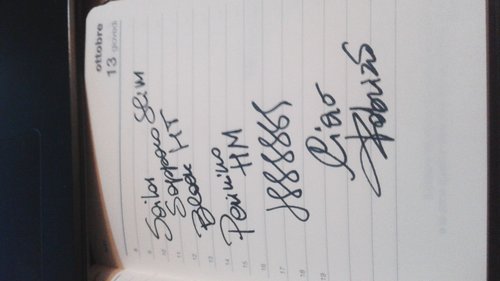 ottobre
13 giovedì
8
9
10
11
12
13
14
15
16
17
18
19
Sailor
Sapporo Slim
Black MT
Pennino
HM
Ciao
Fabrizio